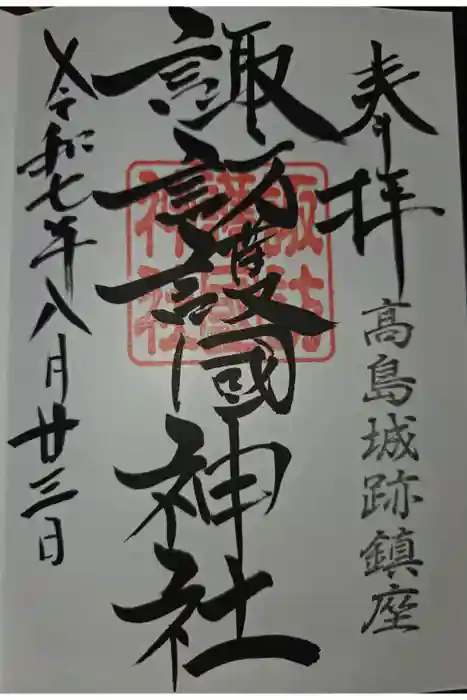 奉拝
高島城跡鎮座
諏訪護國神社
諏訪
護國
神社
令和七年八月廿三日